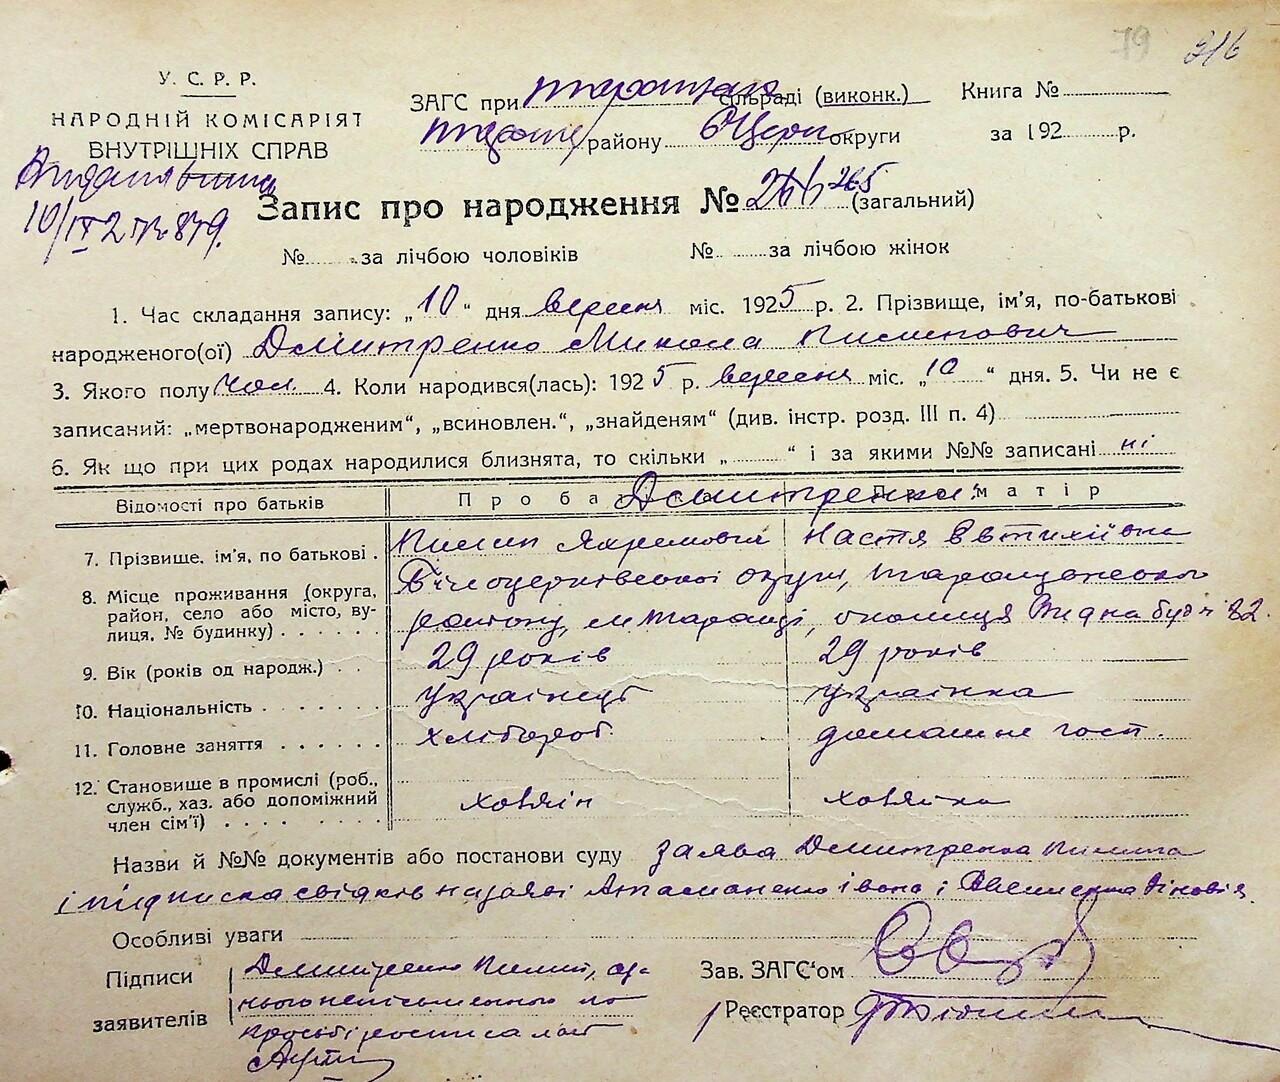 79 216
У. С. Р. Р.
НАРОДНІЙ КОМІСАРІЯТ
ВНУТРІШНІХ СПРАВ
ЗАГС при сільраді (виконк.) Книга №
району Б Церк округи за 192 р.
10/IX 2 879.
Запис про народження № 265 (загальний)
№ за лічбою чоловіків № за лічбою жінок
1. Час складання запису: „10“ дня вересня міс. 1925 р. 2. Прізвище, ім’я, по-батькові
народженого(ої) Дмитренко Микола Пилипович
3. Якого полу Чол. 4. Коли народився(лась): 1925 р. вересня міс. „10“ дня. 5. Чи не є
записаний: „мертвонародженим“, „всиновлен.“, „знайденям“ (див. інстр. розд. III п. 4)
6. Як що при цих родах народилися близнята, то скільки „ “ і за якими №№ записані ні
Відомості про батьків Про ба Дмитренки матір
7. Прізвище, ім’я, по батькові . Пилип Яхремович Настя Євтихіївна
8. Місце проживання (округа, район, село або місто, вулиця, № будинку) Білоцерківської округи, Таращанського
району, м Таращі, околиця буд 82.
9. Вік (років од народж.) 29 років 29 років
10. Національність українець українка
11. Головне заняття хлібороб. домашнє госп.
12. Становище в промислі (роб., служб., хаз. або допоміжний член сім’ї) хозяїн хозяйка
Назви й №№ документів або постанови суду заява Дмитренка Пилипа
і підписка свідків на заяві Атаманенко Івана і Зіновія
Особливі уваги
Підписи заявителів Дмитренко Пилип, а за
нього неписьменного по
прозьбі росписався
Зав. ЗАГС‘ом
Реєстратор